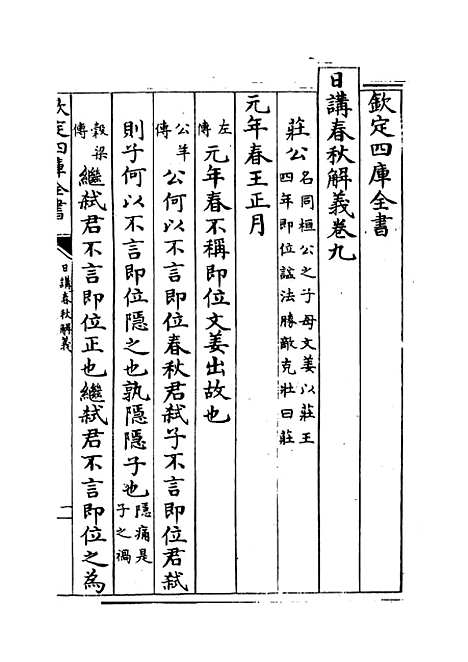 欽定四庫全書
日講春秋解義卷九
莊公名同桓公之子母文姜以莊王
四年即位諡法勝敵克壯曰莊
元年春王正月
左傳元年春不稱即位文姜出故也
公羊傳公何以不言即位春秋君弑子不言即位君弑
則子何以不言即位隱之也孰隱隱子也隱痛是子之禍
穀梁傳繼弑君不言即位正也繼弑君不言即位之為
欽定四庫全書
日講春秋解義
一